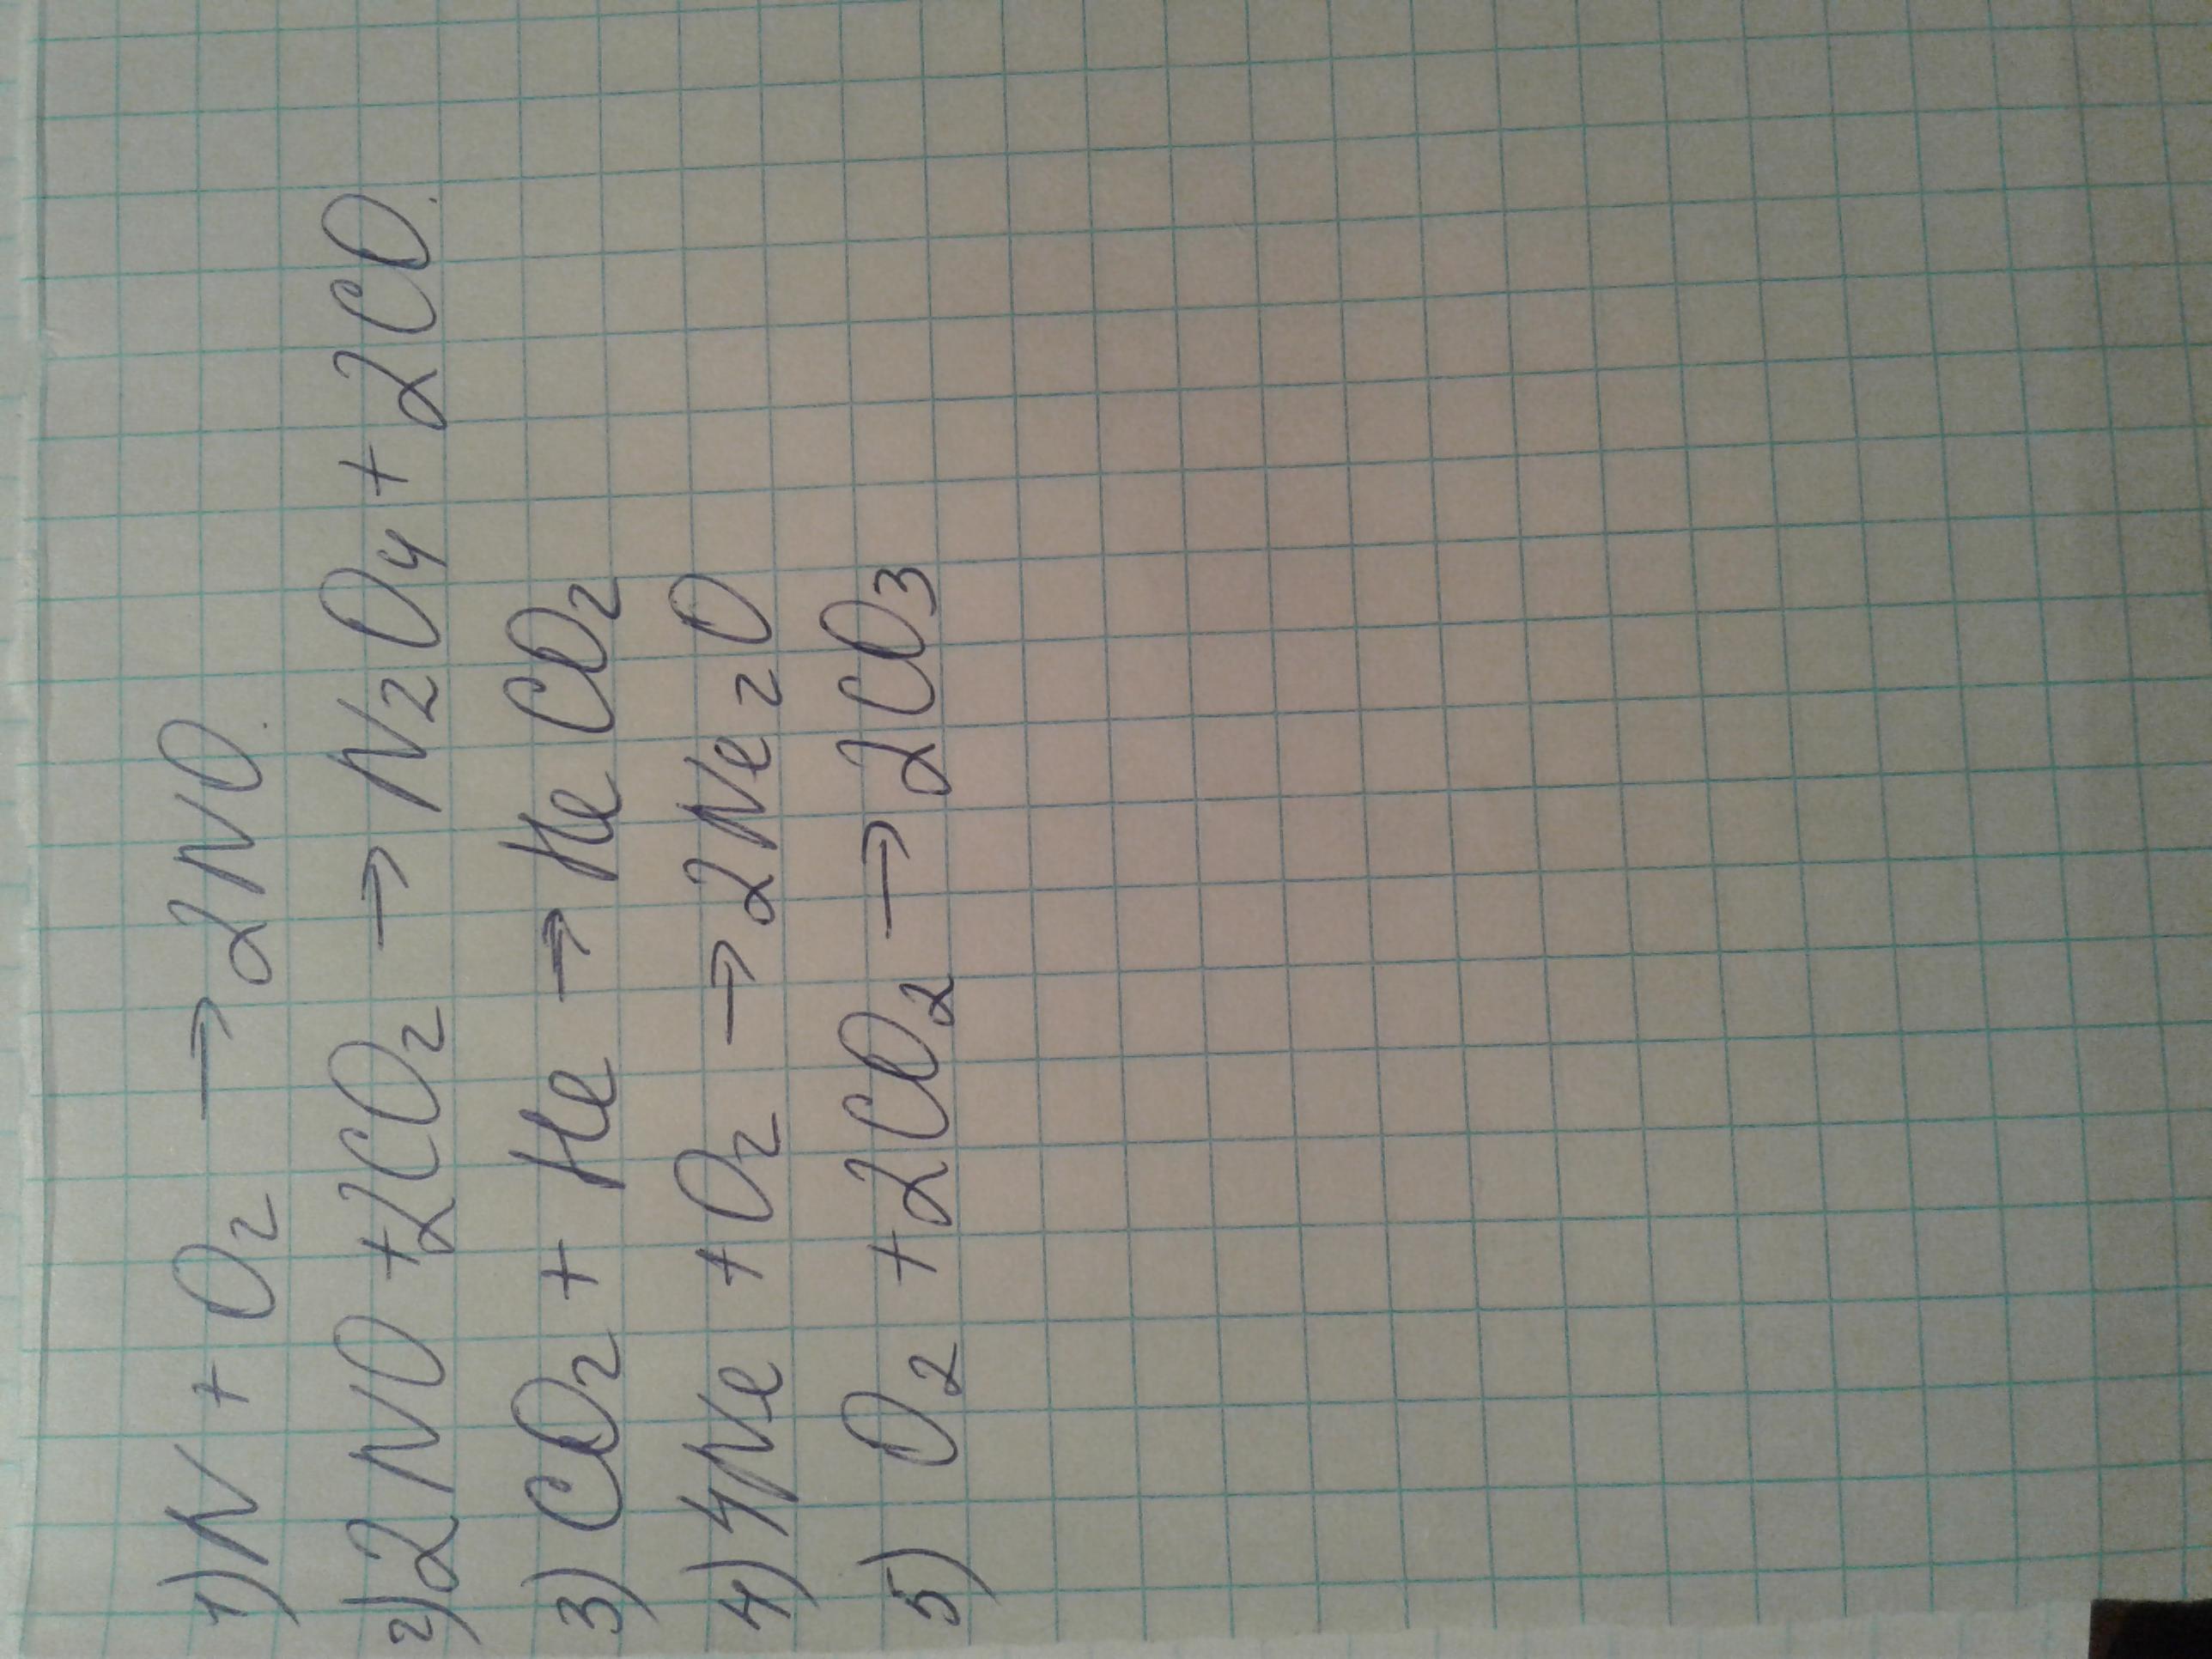 1) N + O₂ → 2NO.
2) 2NO + 2CO₂ → N₂O₄ + 2CO.
3) CO₂ + He → HeCO₂
4) 4Ne + O₂ → 2Ne₂O
5) O₂ + 2CO₂ → 2CO₃